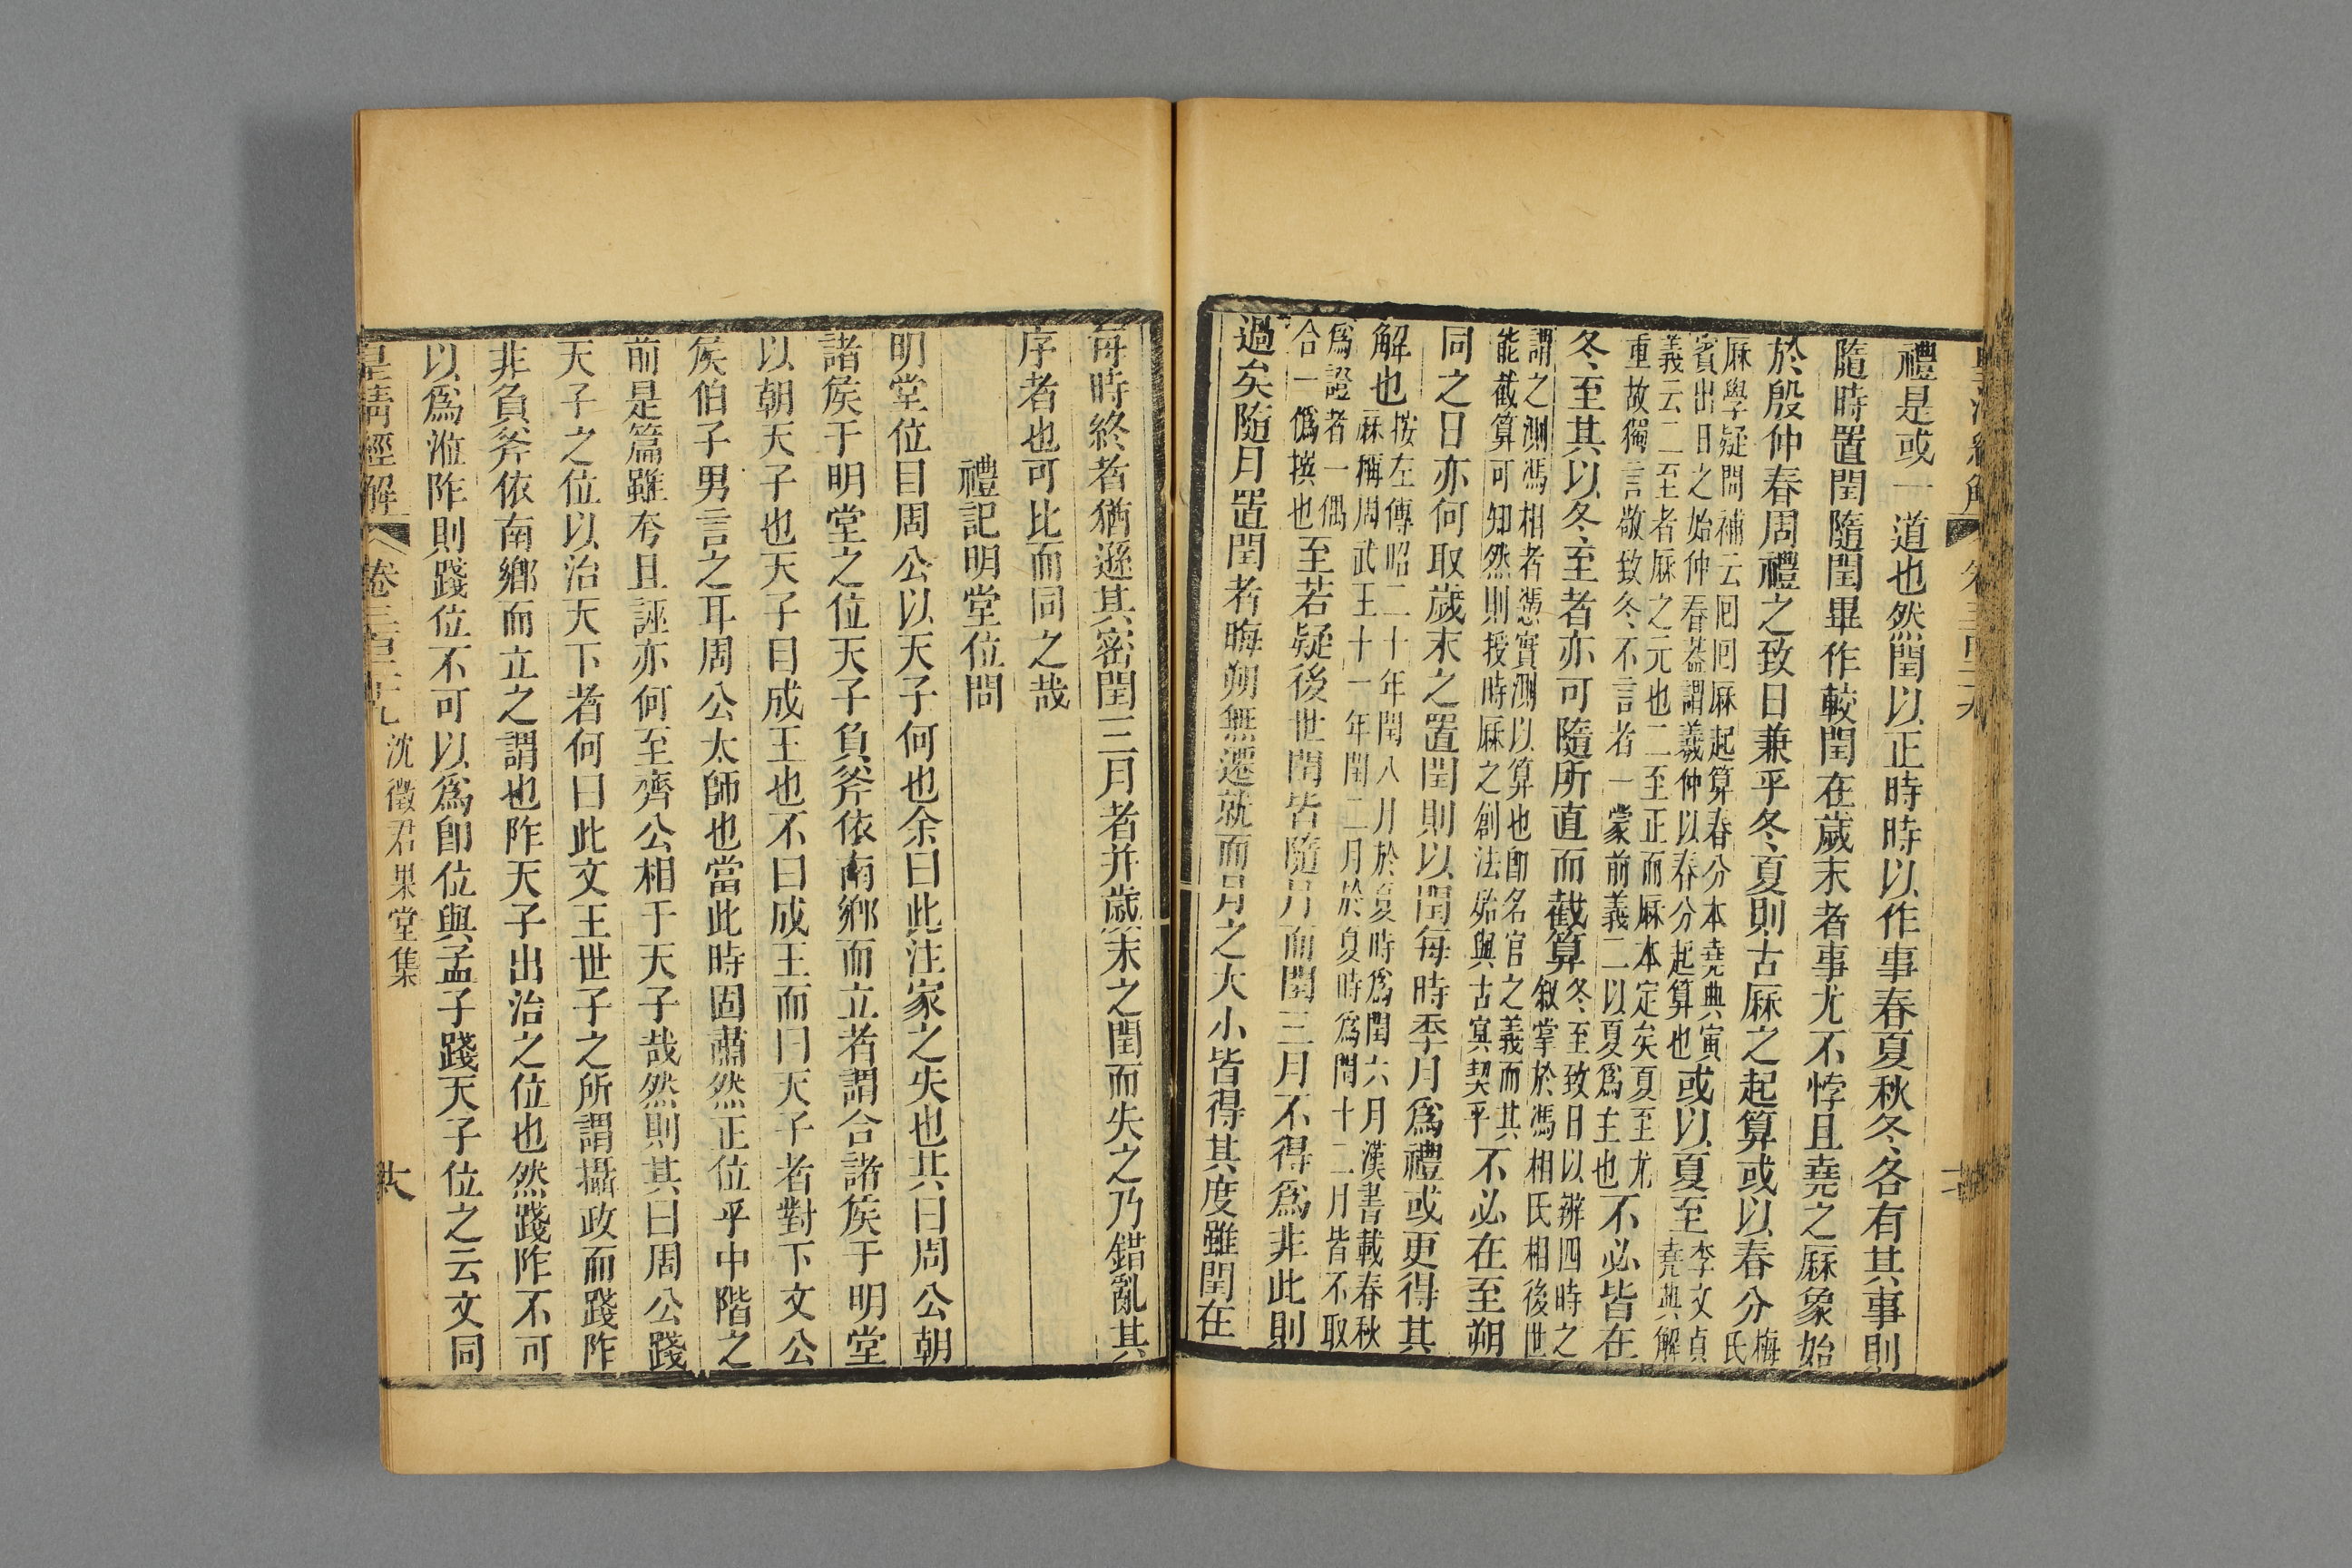 禮是或一道也然閏以正時時以作事春夏秋冬各有其事則
隨時置閏隨閏畢作較閏在歲末者事尤不悖且堯之厤象始
於殷仲春周禮之致日兼乎冬夏則古厤之起算或以春分梅氏
厤學疑問補云囘囘厤起算春分本堯典寅
賓出日之始仲春葢謂羲仲以春分起算也或以夏至李文貞堯典解
義云二至者厤之元也二至正而厤本定矣夏至尤
重故獨言敬致冬不言者一蒙前義二以夏爲主也不必皆在
冬至其以冬至者亦可隨所直而截算冬至致日以辨四時之敘掌於馮相氏相後世
謂之測馮相者憑實測以算也卽名官之義而其
能截算可知然則授時厤之創法始與古冥契乎不必在至朔
同之日亦何取歲末之置閏則以閏每時季月爲禮或更得其
解也按左傳昭二十年閏八月於夏時爲閏六月漢書載春秋
厤稱周武王十一年閏二月於夏時爲閏十二月皆不取
爲證者一偶
合一僞撰也至若疑後世閏皆隨月而閏三月不得爲非此則
過矣隨月置閏者晦朔無遷就而月之大小皆得其度雖閏在
每時終者猶遜其密閏三月者并歲末之閏而失之乃錯亂其
序者也可比而同之哉
禮記明堂位問
明堂位目周公以天子何也余曰此注家之失也其曰周公朝
諸矦于明堂之位天子負斧依南鄉而立者謂合諸矦于明堂
以朝天子也天子曰成王也不曰成王而曰天子者對下文公
矦伯子男言之耳周公太師也當此時固肅然正位乎中階之
前是篇雖夸且誣亦何至齊公相于天子哉然則其曰周公踐
天子之位以治天下者何曰此文王世子之所謂攝政而踐阼
非負斧依南鄉而立之謂也阼天子出治之位也然踐阼不可
以爲涖阼則踐位不可以爲卽位與孟子踐天子位之云文同
皇清經解 卷三百二十九 沈徵君果堂集